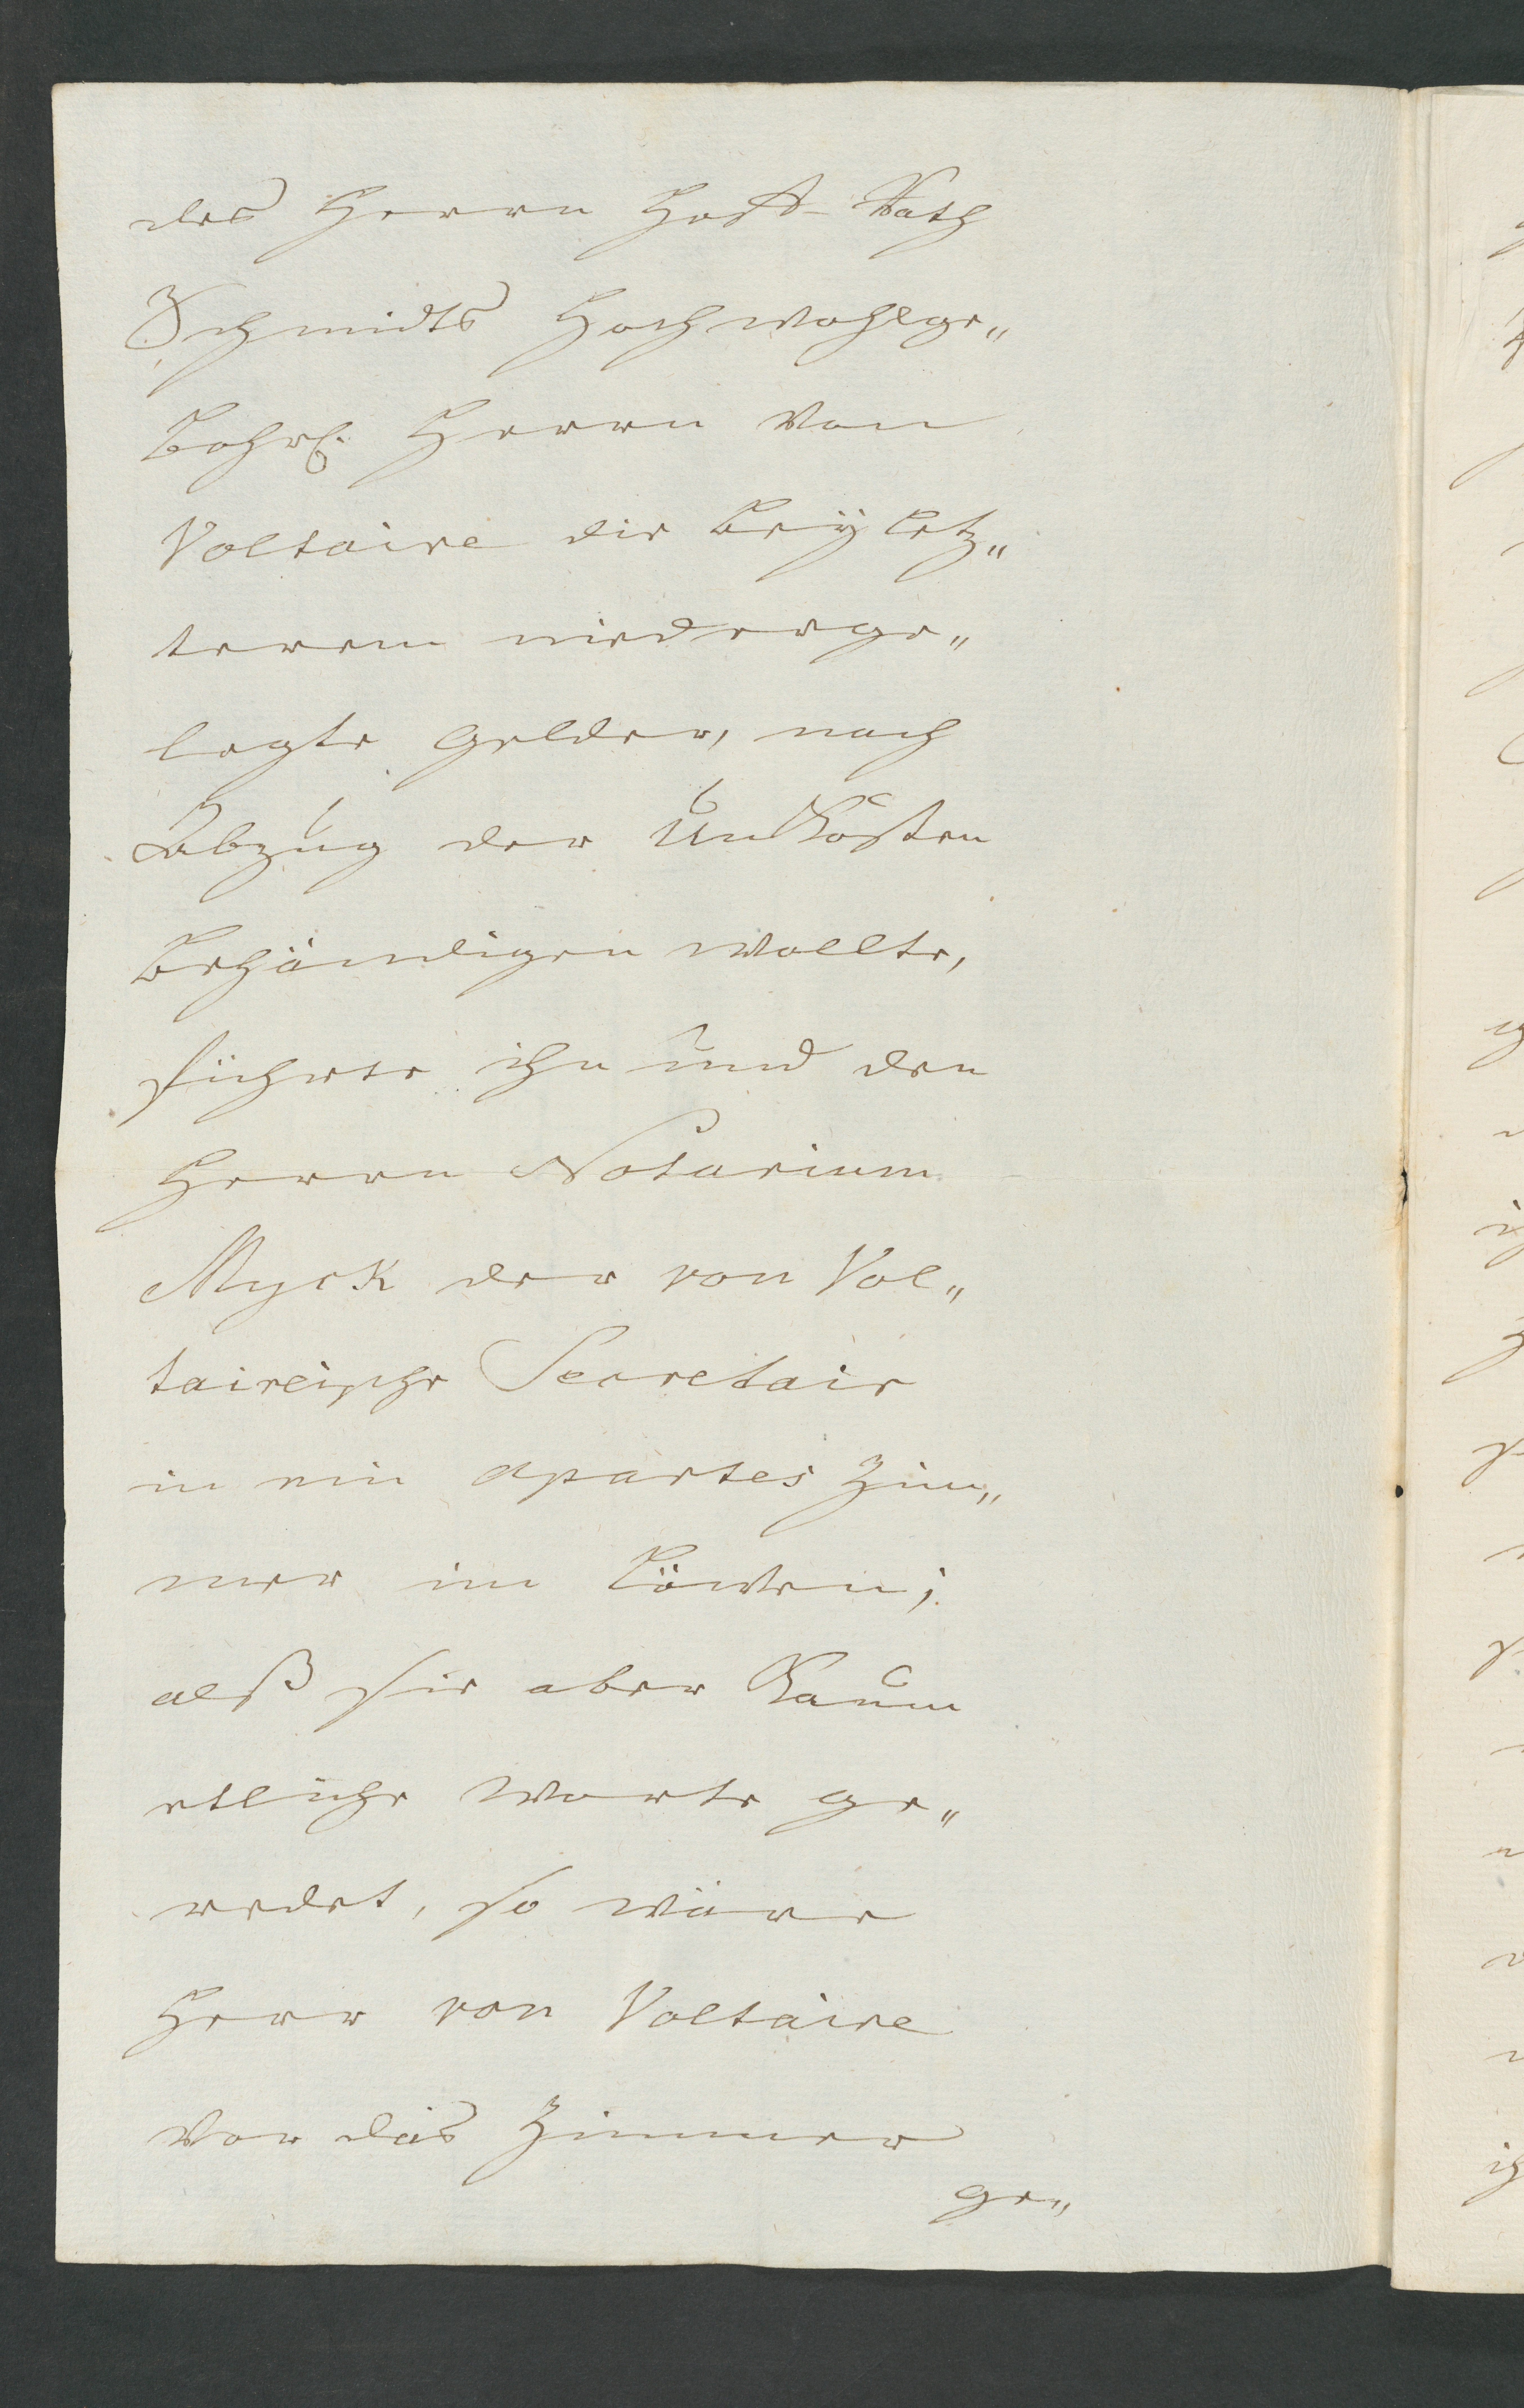 des Herrn Hoff-Rath
Schmidts Hochwohlge„
bohrl. Herrn von
Voltaire die bey letz„
terem niederge„
legte Gelder, nach
Abzug der Unkösten
behändigen wollte,
führte ihn und den
Herrn Notarium
Myck der von Vol„
taireische Secretair
in ein apartes Zim„
mer im Löwen;
alß sie aber kaum
etliche Worte ge„
redet, so wäre
Herr von Voltaire
vor das Zimmer
ge„